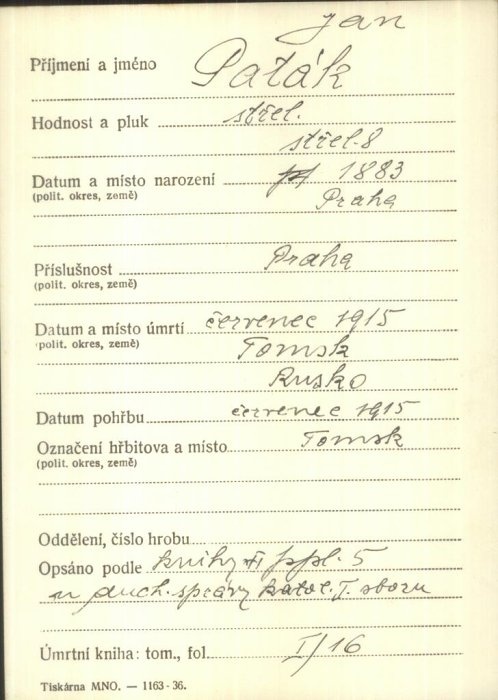 Jan
Příjmení a jméno Paták
Hodnost a pluk střel.
střel. 8
Datum a místo narození 1883
(polit. okres, země) Praha
Příslušnost Praha
(polit. okres, země)
Datum a místo úmrtí červenec 1915
(polit. okres, země) Tomsk
Rusko
Datum pohřbu červenec 1915
Označení hřbitova a místo Tomsk
(polit. okres, země)
Oddělení, číslo hrobu
Opsáno podle knihy ppl. 5
duch. správy katol. I. sboru
Úmrtní kniha: tom., fol. I/16
Tiskárna MNO. — 1163-36.